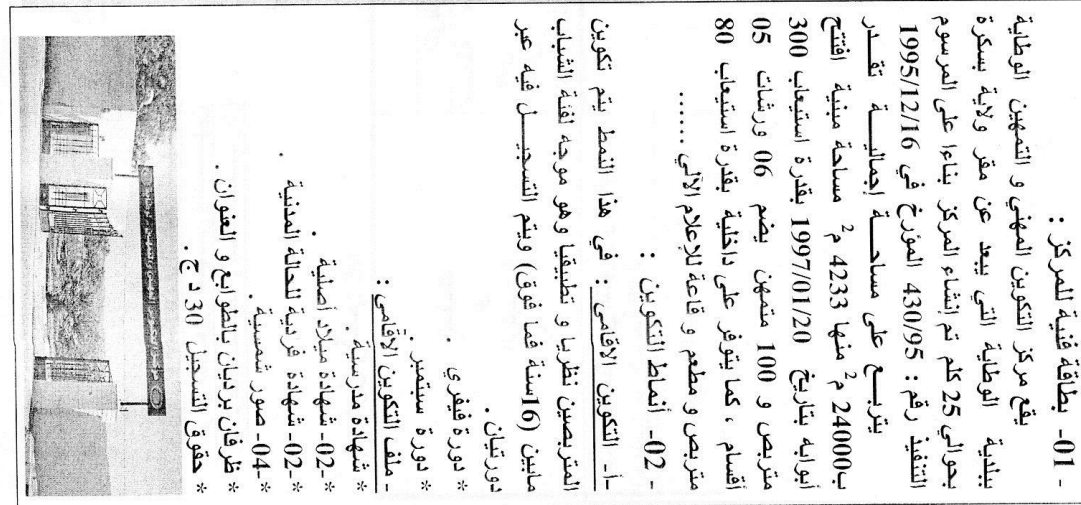 - 01- بطاقة فنية للمركز :
يقع مركز التكوين المهني و التمهين الوطاية
ببلدية الوطاية التي يبعد عن مقر ولاية بسكرة
بحوالي 25 كلم تم إنشاء المركز بناءا على المرسوم
التنفيذ رقم : 430/95 المؤرخ في 1995/12/16
يتربع على مساحة إجمالية تقدر
ب24000 م2 منها 4233 م2 مساحة مبنية افتتح
أبوابه بتاريخ 1997/01/20 بقدرة استيعاب 300
متربص و 100 متمهن يضم 06 ورشات 05
أقسام ، كما يتوفر على داخلية بقدرة استيعاب 80
متربص و مطعم و قاعة للإعلام الآلي ......
- 02- أنماط التكوين :
أ- التكوين الاقامي : في هذا النمط يتم تكوين
المتربصين نظريا و تطبيقيا وهو موجه لفئة الشباب
مابين (16سنة فما فوق) ويتم التسجيل فيه عبر
دورتيان .
* دورة فيفري .
* دورة سبتمبر .
- ملف التكوين الاقامي :
* شهادة مدرسية.
*-02- شهادة ميلاد أصلية .
*-02- شهادة فردية للحالة المدنية .
*-04- صور شمسية .
* ظرفان بريديان بالطوابع و العنوان .
* حقوق التسجيل 30 دج .